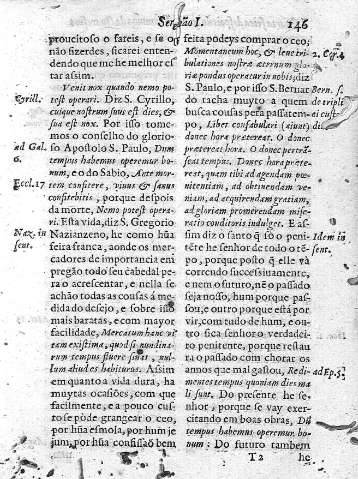 Sermão I. 146
proueitoso o fareis, e se o
não fizerdes, ficarei enten-
dendo que me he melhor es
tar assim.
Venit nox quando nemo po-
test operari. Diz S. Cyrillo,
Cyrill.
cuique nostrum suus est dies, &
sua est nox. Por isso tome-
mos o conselho do glorio-
so Apostolo S. Paulo, Dum
ad Gal. 6.
tempus habemus operemur bo-
num, e o do Sabio, Ante mor-
tem confitere, viuus & sanus
Eccl. 17
confiteberis, porque despois
da morte, Nemo potest opera-
ri. Esta vida, diz S. Gregorio
Nazianzeno, he como hũa
Naz. in sent.
feira franca, aonde os mer-
cadores de importancia em
pregão todo seu cabedal pe-
ra o acrescentar, e nella se
achão todas as cousas á me
dida do desejo, e sobre isso
mais baratas, e com mayor
facilidade, Mercatum hanc vi
tam existima, quod si nundina
rum tempus fluere sinat, nul-
lum aliud es habiturus. Assim
em quanto a vida dura, ha
muytas ocasiões, com que
facilmente, e a pouco cus-
to se póde grangear o ceo,
por hũa esmola, por hum je
jum, por hũa confissaõ bem
feita podeys comprar o ceo,
Momentaneum hoc, & leue tri-
2. Cor. 4
bulationes nostræ æternum glo-
riæ pondus operatur in nobis, diz
S. Paulo, e por isso S. Bernar
Bern. s.
do tacha muyto a quem
de tripli
busca cousas pera passatem-
ei custo
po, Liber confabulari (aiunt) di
dum hora prætereat. O donec
prætereat hora. O donec pertrã-
seat tempus. Donec hora præte-
reat, quam tibi ad agendam pœ-
nitentiam, ad obtinendam ve-
niam, ad acquirendam gratiam,
ad gloriam promerendam mise-
ratio conditoris indulget. E as-
sim diz o santo q̃ só o peni-
Idem in
tẽte he senhor de todo o tẽ-
sent.
po, porque posto q̃ elle và
correndo successiuamente,
e nem o futuro, nẽ o passado
seja nosso, hum porque pas-
sou, e outro porque està por
vir, com tudo de hum, e ou-
tro fica senhor o verdadei-
ro penitente, porque restau
ra o passado com chorar os
annos que mal gastou, Redi-
ad Ep. 5.
mentes tempus quoniam dies ma
li sunt. Do presente he se-
nhor, porque se vay exer-
citando em boas obras, Dũ
tempus habemus operemur bo-
num: Do futuro tambem
T 2 he